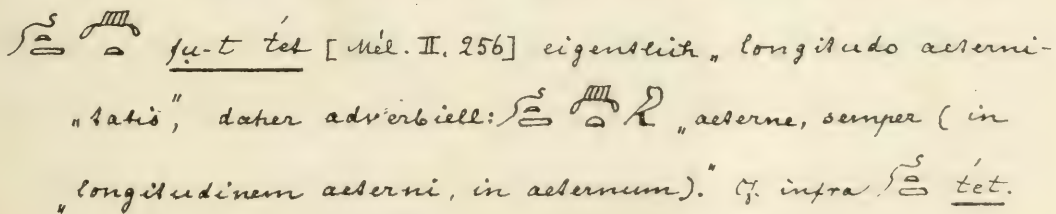 fu-t tet [Mél. II. 256] eigentlich „longitudo aeterni-
„tatis“, daher adverbiell: „aeterne, semper (in
„longitudinem aeterni, in aeternum).“ Cf. infra tet.